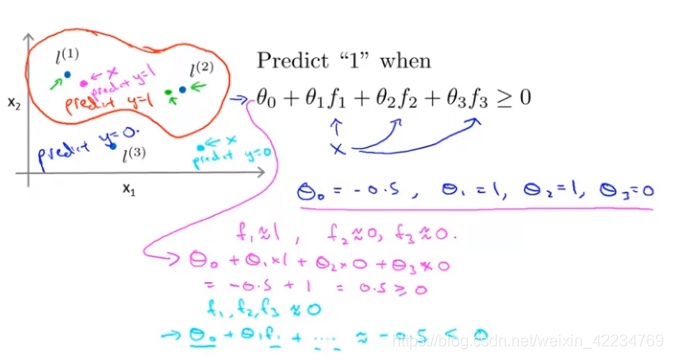 l⁽¹⁾
← x
predict y=1
l⁽²⁾
predict y=1
x₂
predict y=0.
l⁽³⁾
← x
predict y=0
x₁
Predict “1” when
θ₀ + θ₁f₁ + θ₂f₂ + θ₃f₃ ≥ 0
x
θ₀ = -0.5 , θ₁ = 1, θ₂ = 1, θ₃ = 0
f₁ ≈ 1 , f₂ ≈ 0, f₃ ≈ 0.
→ θ₀ + θ₁×1 + θ₂×0 + θ₃×0
= -0.5 + 1 = 0.5 ≥ 0
f₁, f₂, f₃ ≈ 0
→ θ₀ + θ₁f₁ + .... ≈ -0.5 < 0
https://blog.csdn.net/weixin_42234769